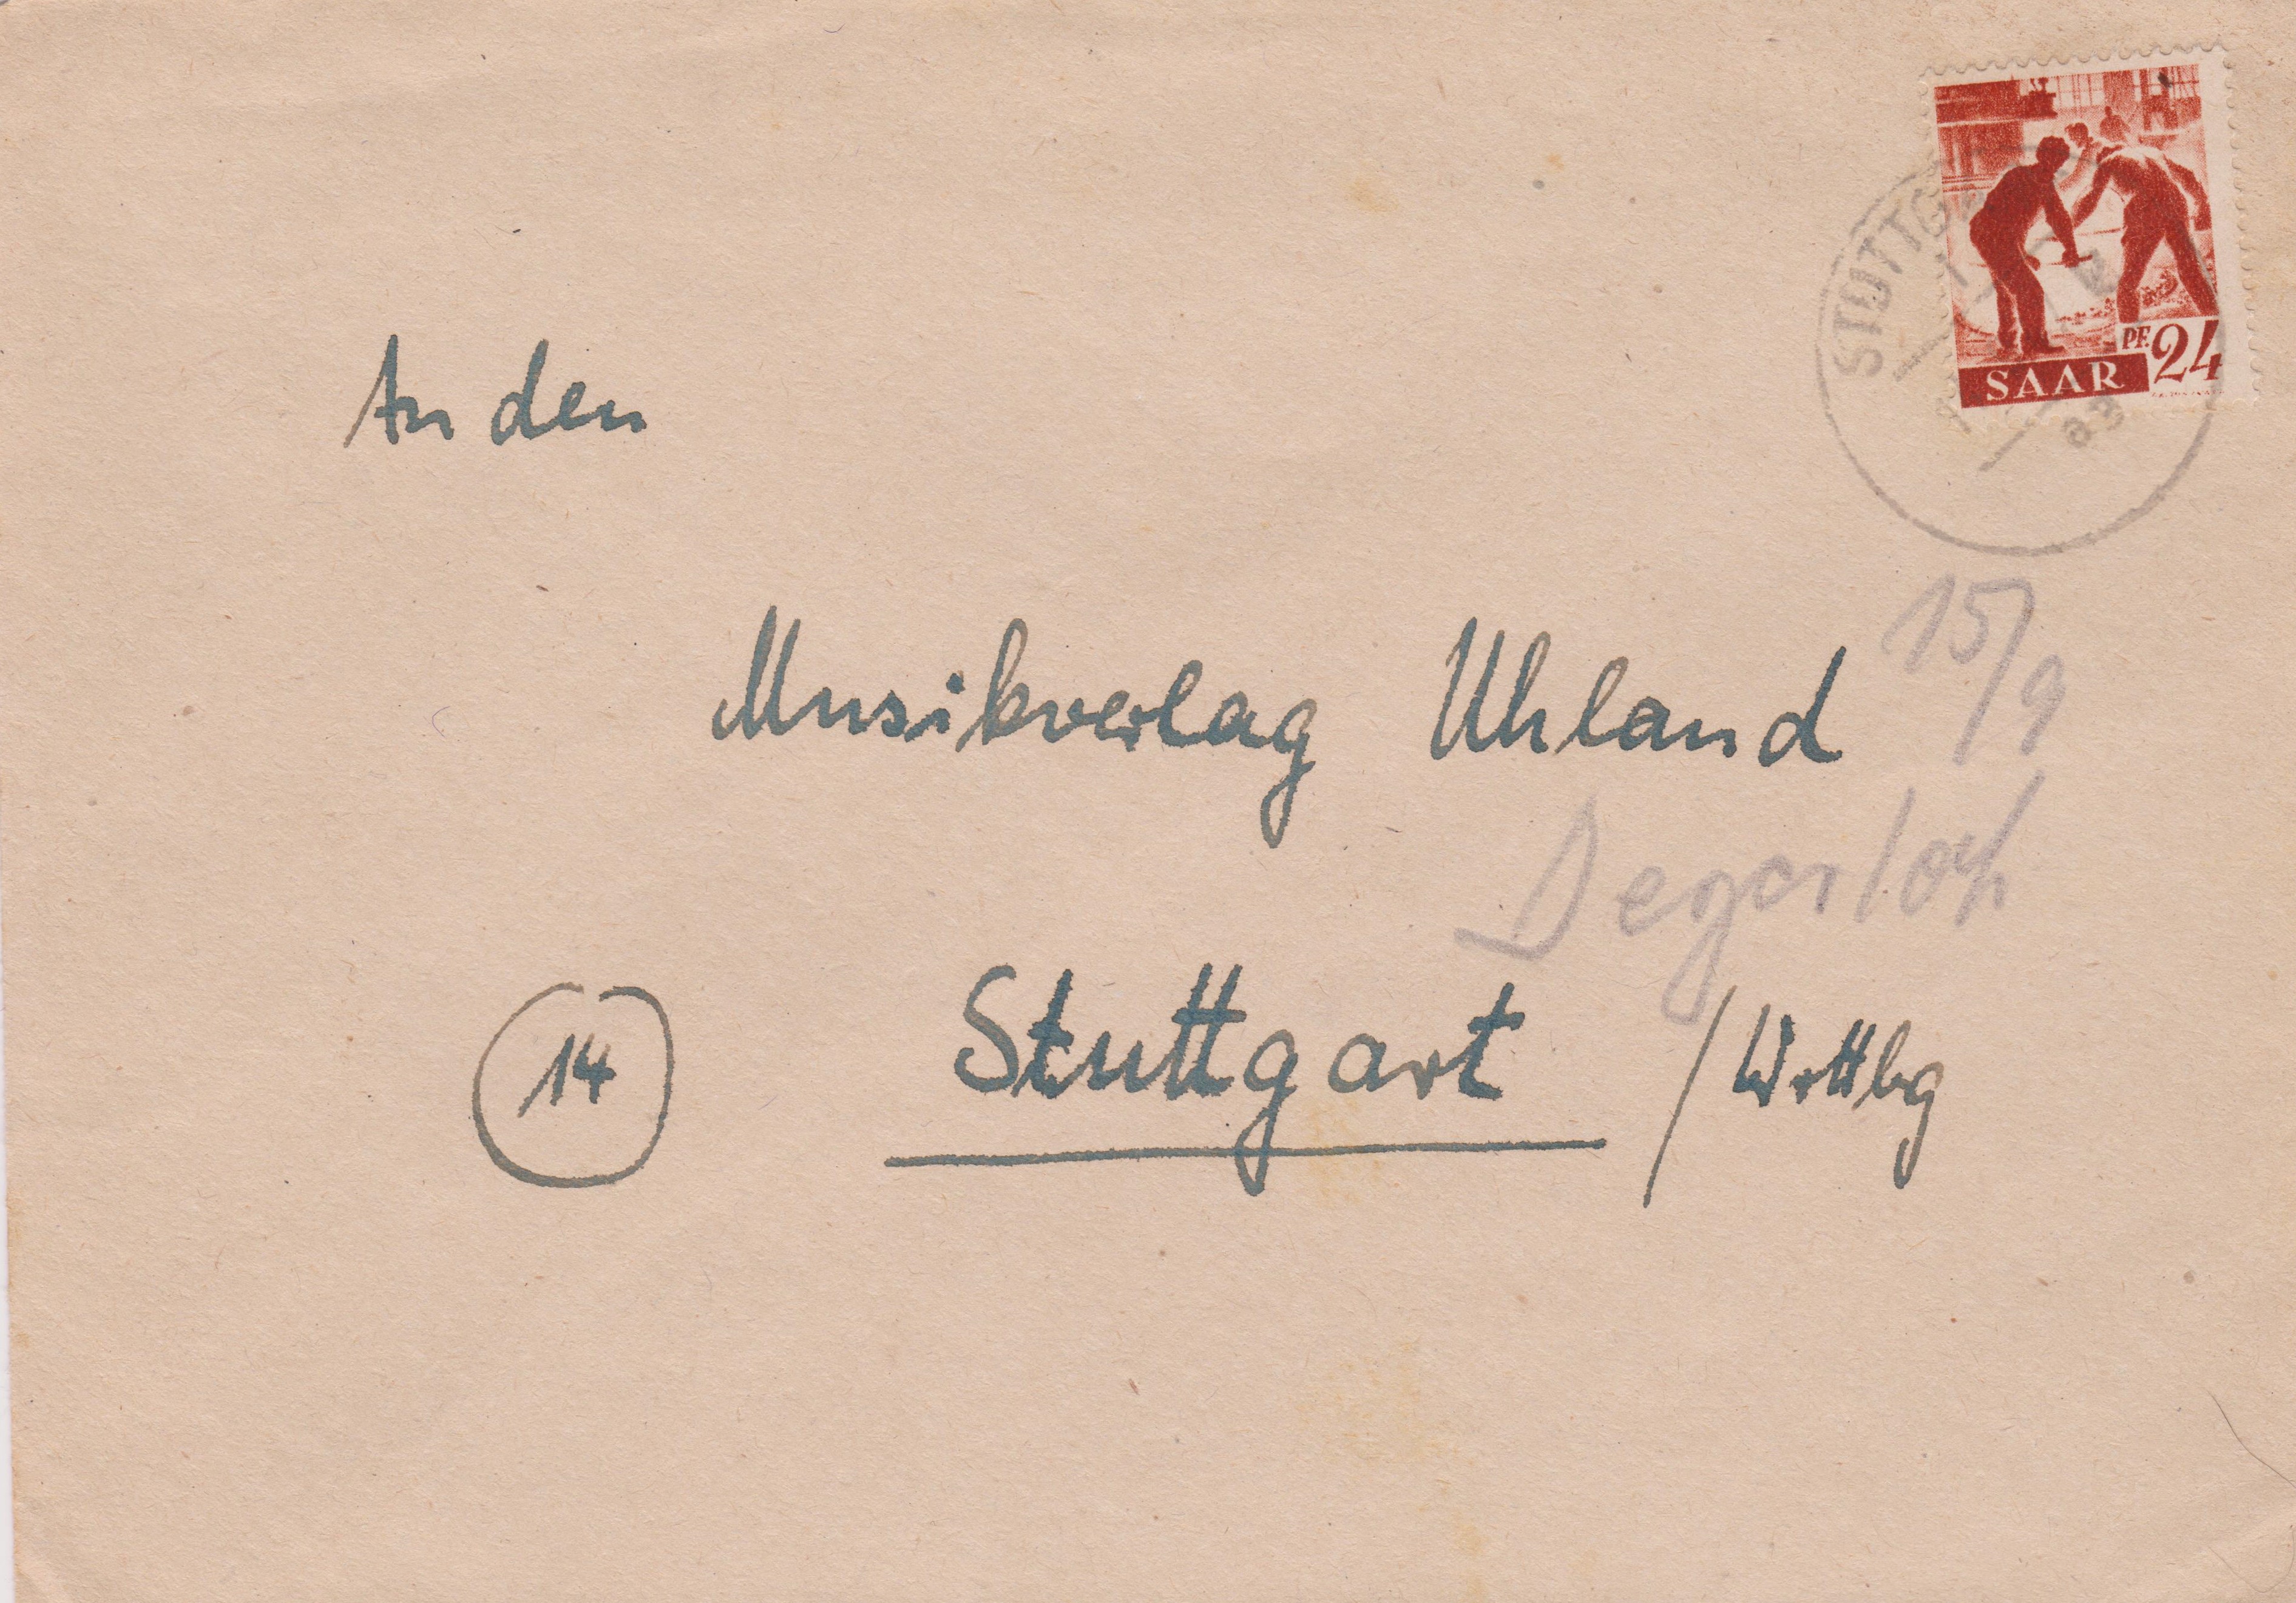 STUTTGA
PF. 24
SAAR
An den
Musikverlag Uhland
15/9
Degerloch
14
Stuttgart / Wrttbg